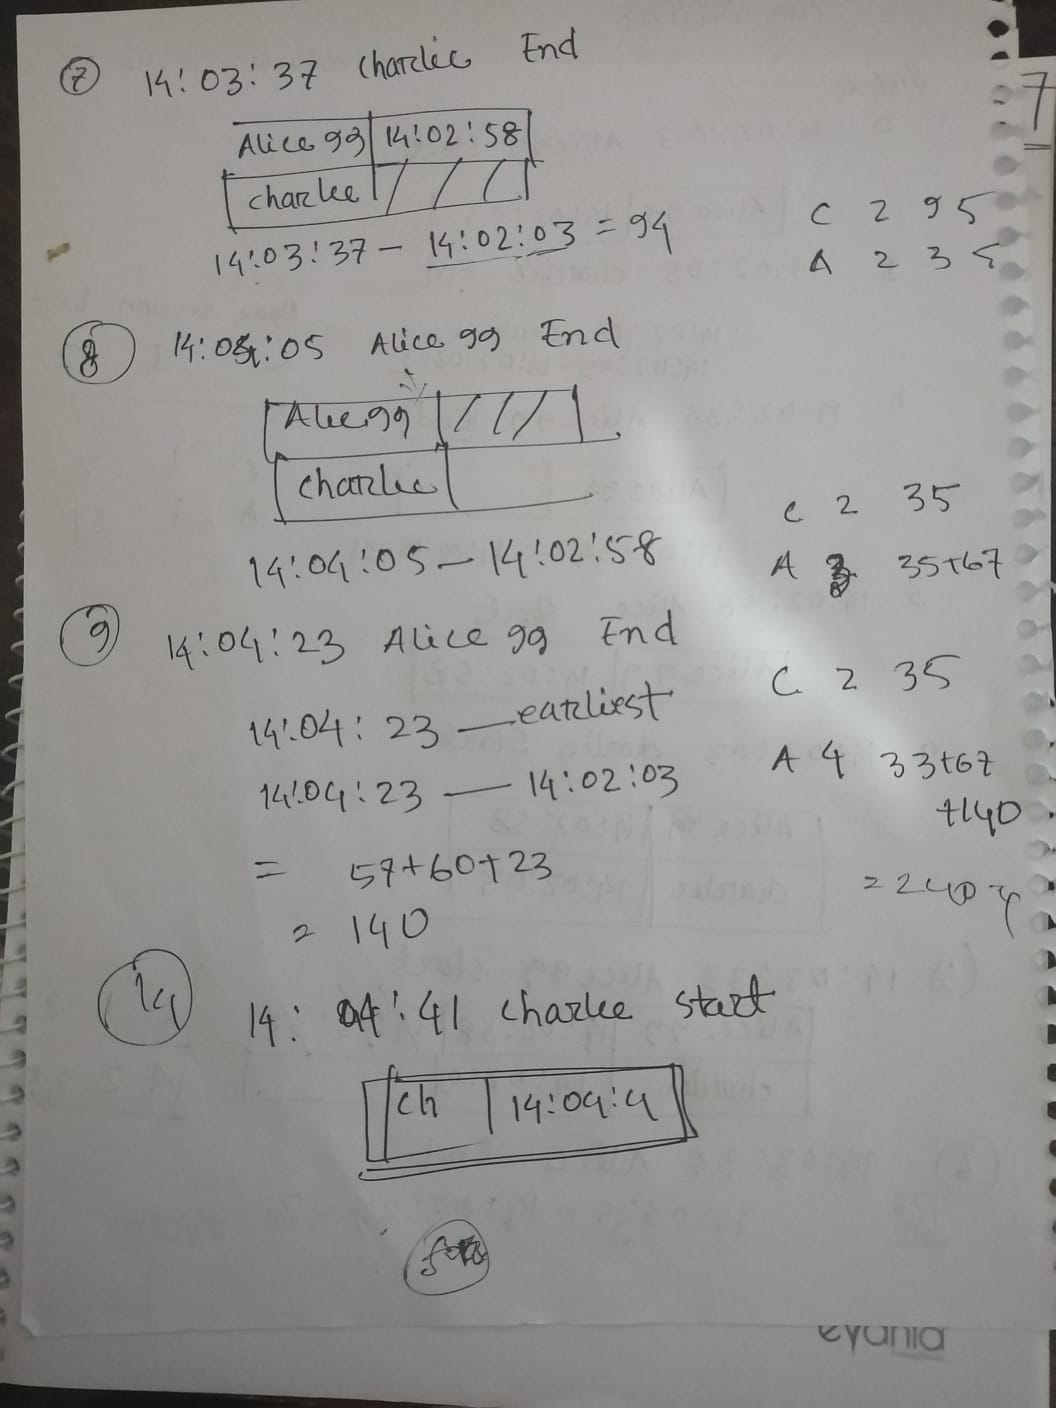 7 14:03:37 Charlie End
7
Alice 99 14:02:58
charlie
14:03:37 - 14:02:03 = 94
C 2 95
A 2 35
8 14:04:05 Alice 99 End
Alice 99
charlie
14:04:05 - 14:02:58
C 2 35
A 3 35+67
9 14:04:23 Alice 99 End
14:04:23 — earliest
14:04:23 — 14:02:03
= 57+60+23
= 140
C 2 35
A 4 33+67
+140
= 240
14:04:41 charlie start
ch 14:04:4